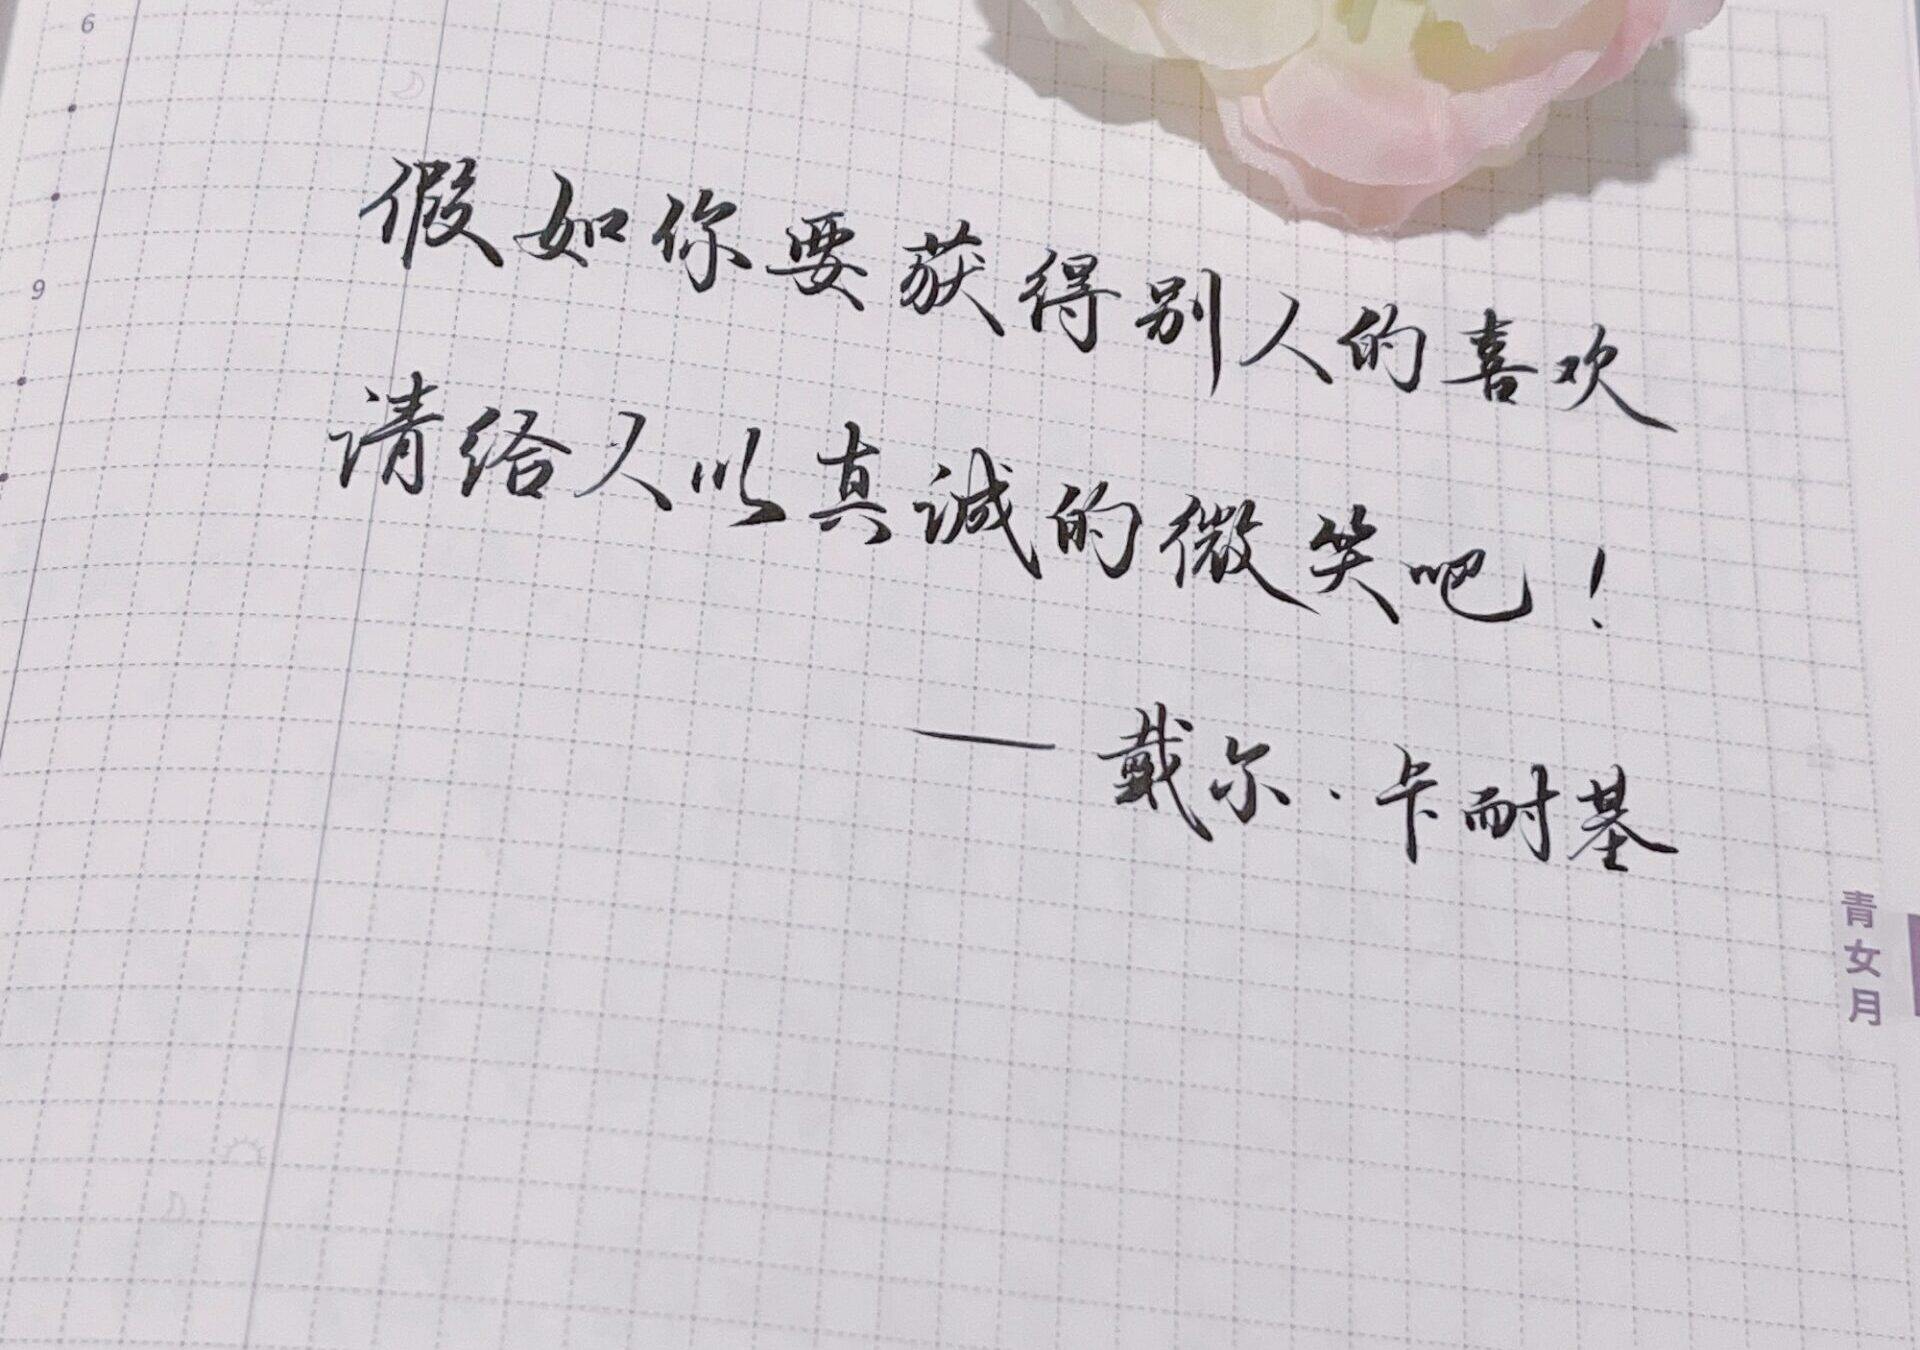 6
9
假如你要获得别人的喜欢
请给人以真诚的微笑吧！
—戴尔·卡耐基
青女月